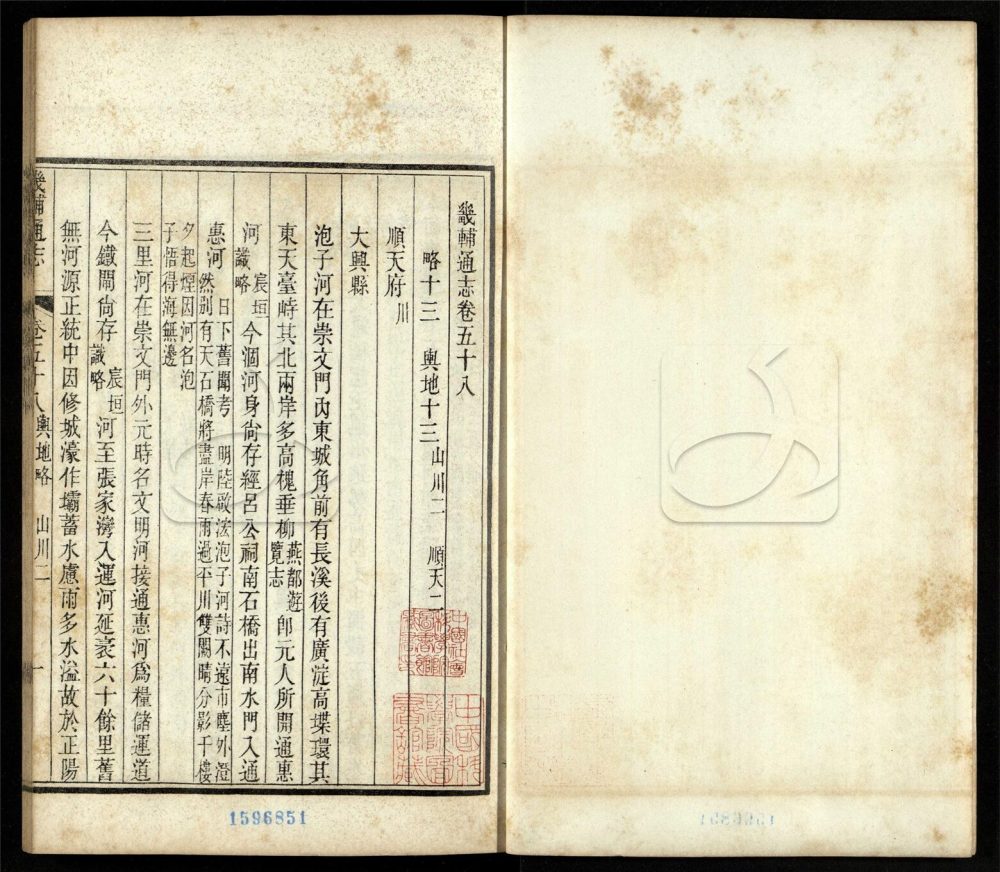 畿輔通志卷五十八
略十三 輿地十三 山川二 順天二
順天府 川
大興縣
泡子河在崇文門內東城角前有長溪後有廣淀高堞環其
東天臺峙其北兩岸多高槐垂柳 燕都遊覽志 卽元人所開通惠
河 宸垣識略 今涸河身尙存經呂公祠南石橋出南水門入通
惠河 日下舊聞考 明陸啟浤泡子河詩不遠市塵外澄
然別有天石橋將盡岸春雨過平川雙闕晴分影千樓
夕起煙因河名泡
子悟得海無邊
三里河在崇文門外元時名文明河接通惠河爲糧儲運道
今鐵閘尙存 宸垣識略 河至張家灣入運河延袤六十餘里舊
無河源正統中因修城濠作壩蓄水慮雨多水溢故於正陽
畿輔通志 卷五十八 輿地略 山川二 一
中國社會科學院圖書館藏書
1596851